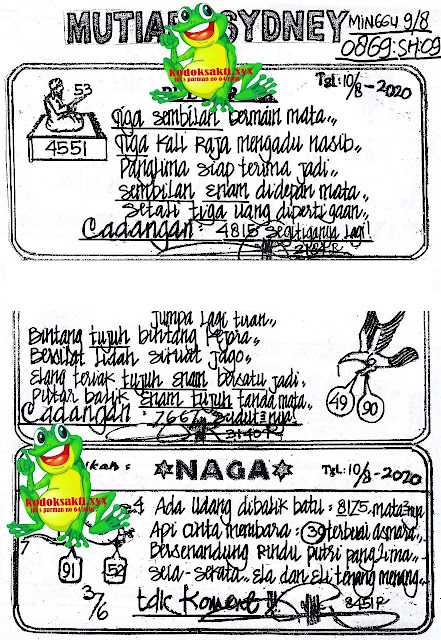 MUTIARA SYDNEY MINGGU 9/8
0869:SH:09
kodoksakti.xyx
Tgl: 10/8-2020
53
4551
Tiga sembilan bermain mata..
Tiga kali raja mengadu nasib..
Panglima siap terima jadi..
sembilan enam didepan mata..
Setali tiga uang dipertigaan..
Cadangan: 4815 segitiganya lagi!
Jumpa lagi tuan..
Bintang tujuh bintang kejora..
Bersilat lidah silat jago..
Elang teriak tujuh enam bersatu jadi..
Putar balik enam tujuh tanda mata..
Cadangan: 7667
3140 R
49 90
kodoksakti.xyx
ikan: NAGA Tgl: 10/8-2020
4 Ada udang dibalik batu: 8175 matanya
Api cinta membara: 39 terbuai asmara..
Bersenandung rindu putri panglima..
seia-sekata.. Ela dan Eli tenang menang..
7
91 52
3/6
tdk Koment !!!
8451 R